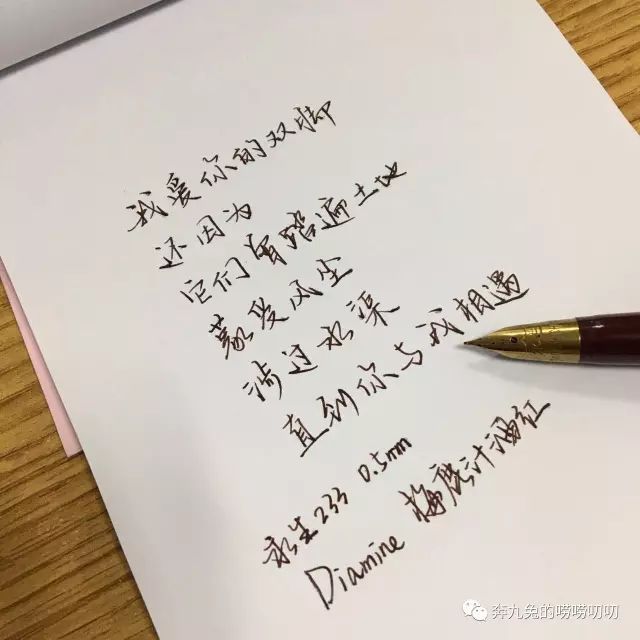 我爱你的双脚
还因为
它们曾踏遍土地
蒙受风尘
涉过水渠
直到你与我相遇
永生233 0.5mm
Diamine 梅鹿汁酒红
奔九兔的唠唠叨叨